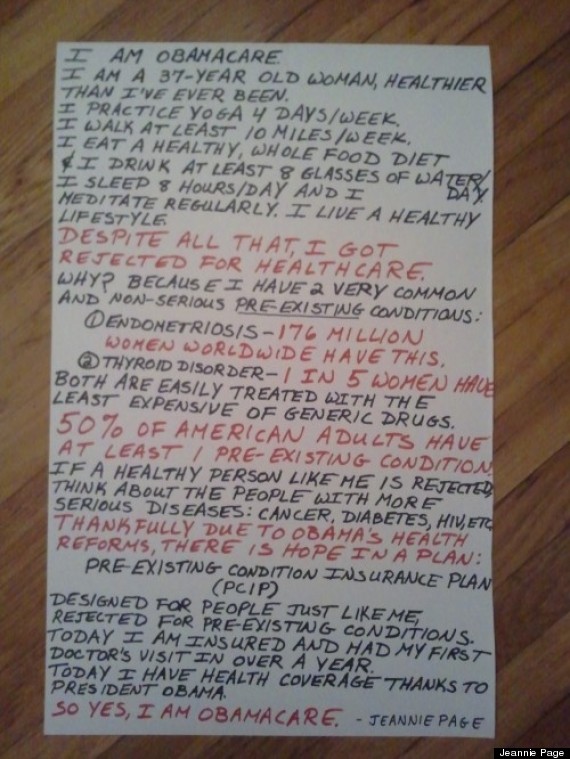 I AM OBAMACARE.
I AM A 37-YEAR OLD WOMAN, HEALTHIER
THAN I'VE EVER BEEN.
I PRACTICE YOGA 4 DAYS/WEEK.
I WALK AT LEAST 10 MILES/WEEK.
I EAT A HEALTHY, WHOLE FOOD DIET
& I DRINK AT LEAST 8 GLASSES OF WATER/
DAY.
I SLEEP 8 HOURS/DAY AND I
MEDITATE REGULARLY. I LIVE A HEALTHY
LIFESTYLE.
DESPITE ALL THAT, I GOT
REJECTED FOR HEALTHCARE.
WHY? BECAUSE I HAVE 2 VERY COMMON
AND NON-SERIOUS PRE-EXISTING CONDITIONS:
① ENDOMETRIOSIS - 176 MILLION
WOMEN WORLDWIDE HAVE THIS.
② THYROID DISORDER - 1 IN 5 WOMEN HAVE
BOTH ARE EASILY TREATED WITH THE
LEAST EXPENSIVE OF GENERIC DRUGS.
50% OF AMERICAN ADULTS HAVE
AT LEAST 1 PRE-EXISTING CONDITION.
IF A HEALTHY PERSON LIKE ME IS REJECTED,
THINK ABOUT THE PEOPLE WITH MORE
SERIOUS DISEASES: CANCER, DIABETES, HIV, ETC
THANKFULLY DUE TO OBAMA'S HEALTH
REFORMS, THERE IS HOPE IN A PLAN:
PRE-EXISTING CONDITION INSURANCE PLAN
(PCIP)
DESIGNED FOR PEOPLE JUST LIKE ME,
REJECTED FOR PRE-EXISTING CONDITIONS.
TODAY I AM INSURED AND HAD MY FIRST
DOCTOR'S VISIT IN OVER A YEAR.
TODAY I HAVE HEALTH COVERAGE THANKS TO
PRESIDENT OBAMA.
SO YES, I AM OBAMACARE. - JEANNIE PAGE
Jeannie Page